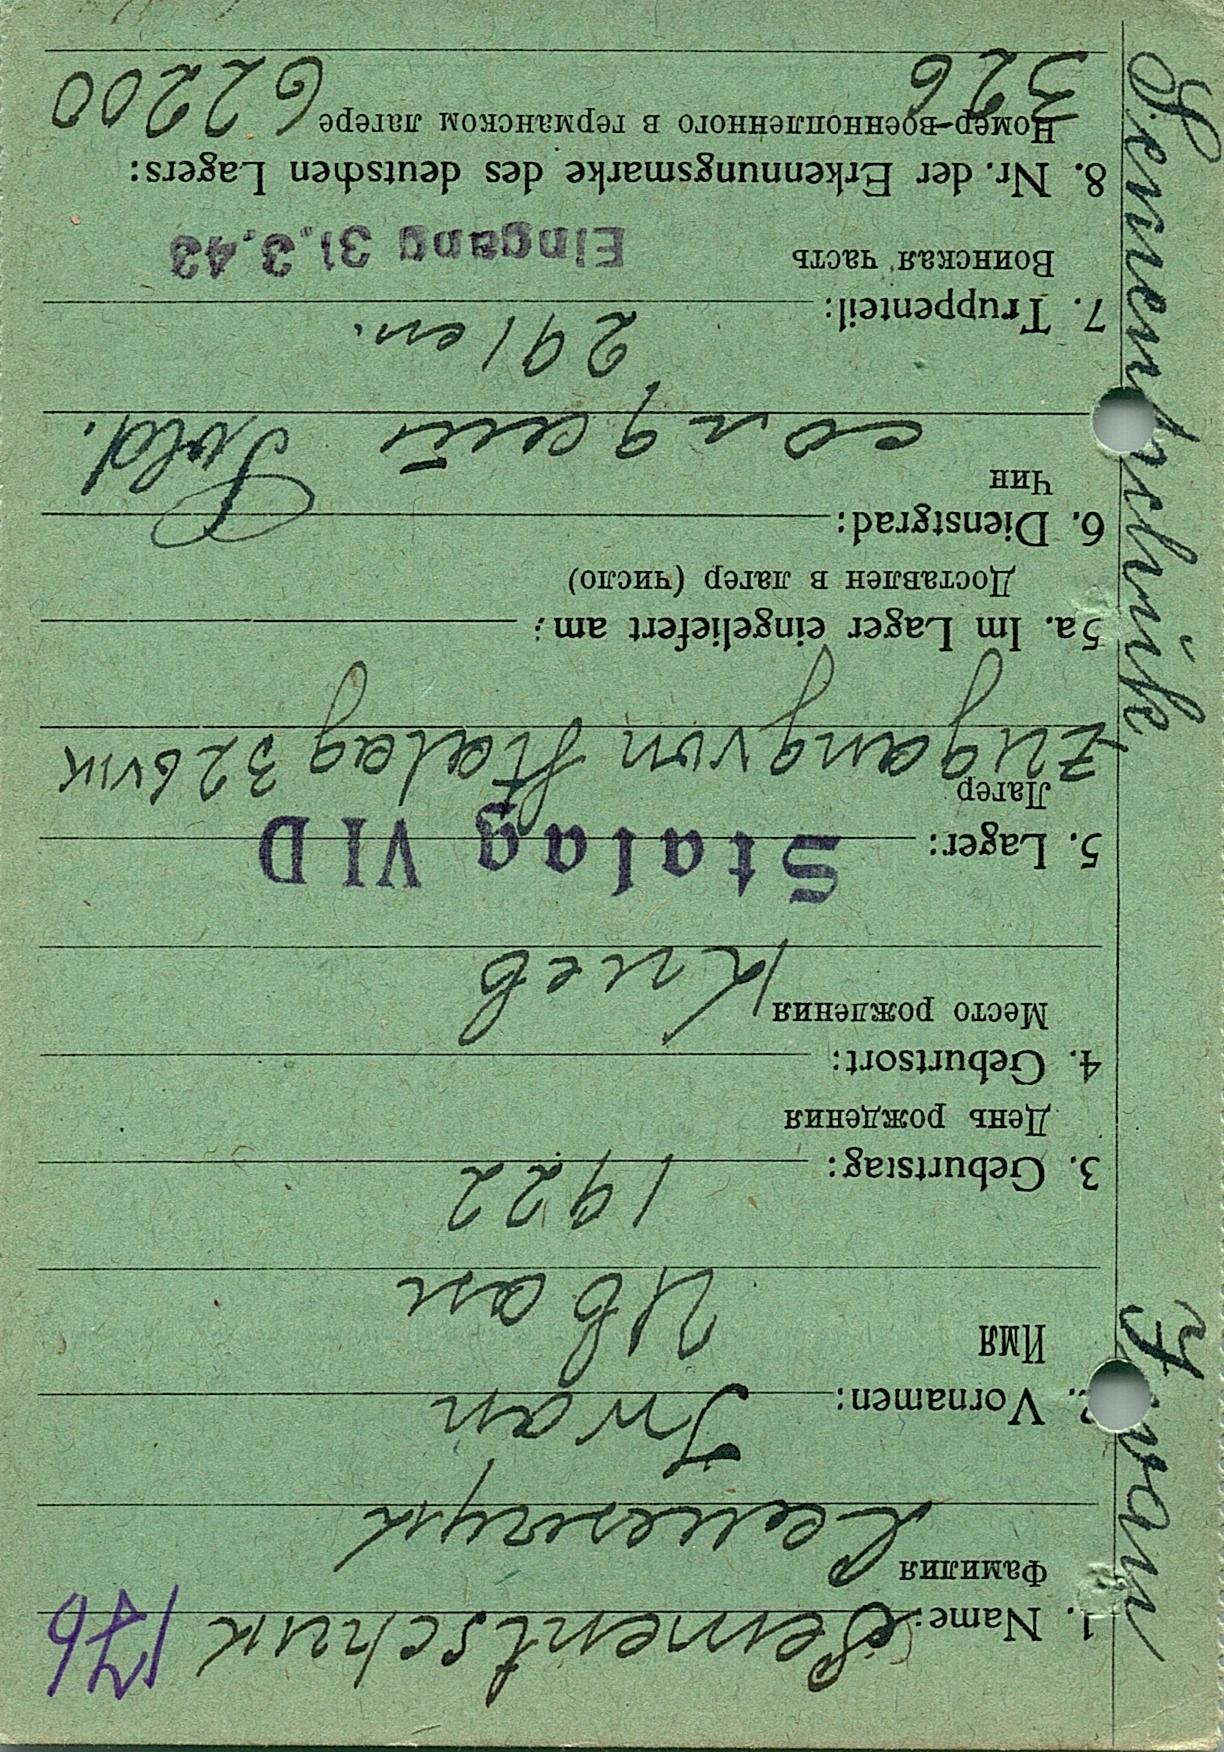 Sementschuk, Iwan
1. Name: Sementschuk 176
Фамилия Семенчук
2. Vornamen: Iwan
Имя Иван
3. Geburtstag: 1922
День рождения
4. Geburtsort:
Место рождения Киев
5. Lager: Stalag VI D
Лагер
Zugang von Stalag 326 VIK
5a. Im Lager eingeliefert am:
Доставлен в лагер (число)
6. Dienstgrad: Sold.
Чин солдат
7. Truppenteil: 291 сп.
Воинская часть Eingang 31.3.43
8. Nr. der Erkennungsmarke des deutschen Lagers:
Номер военнопленного в германском лагере
326 62200